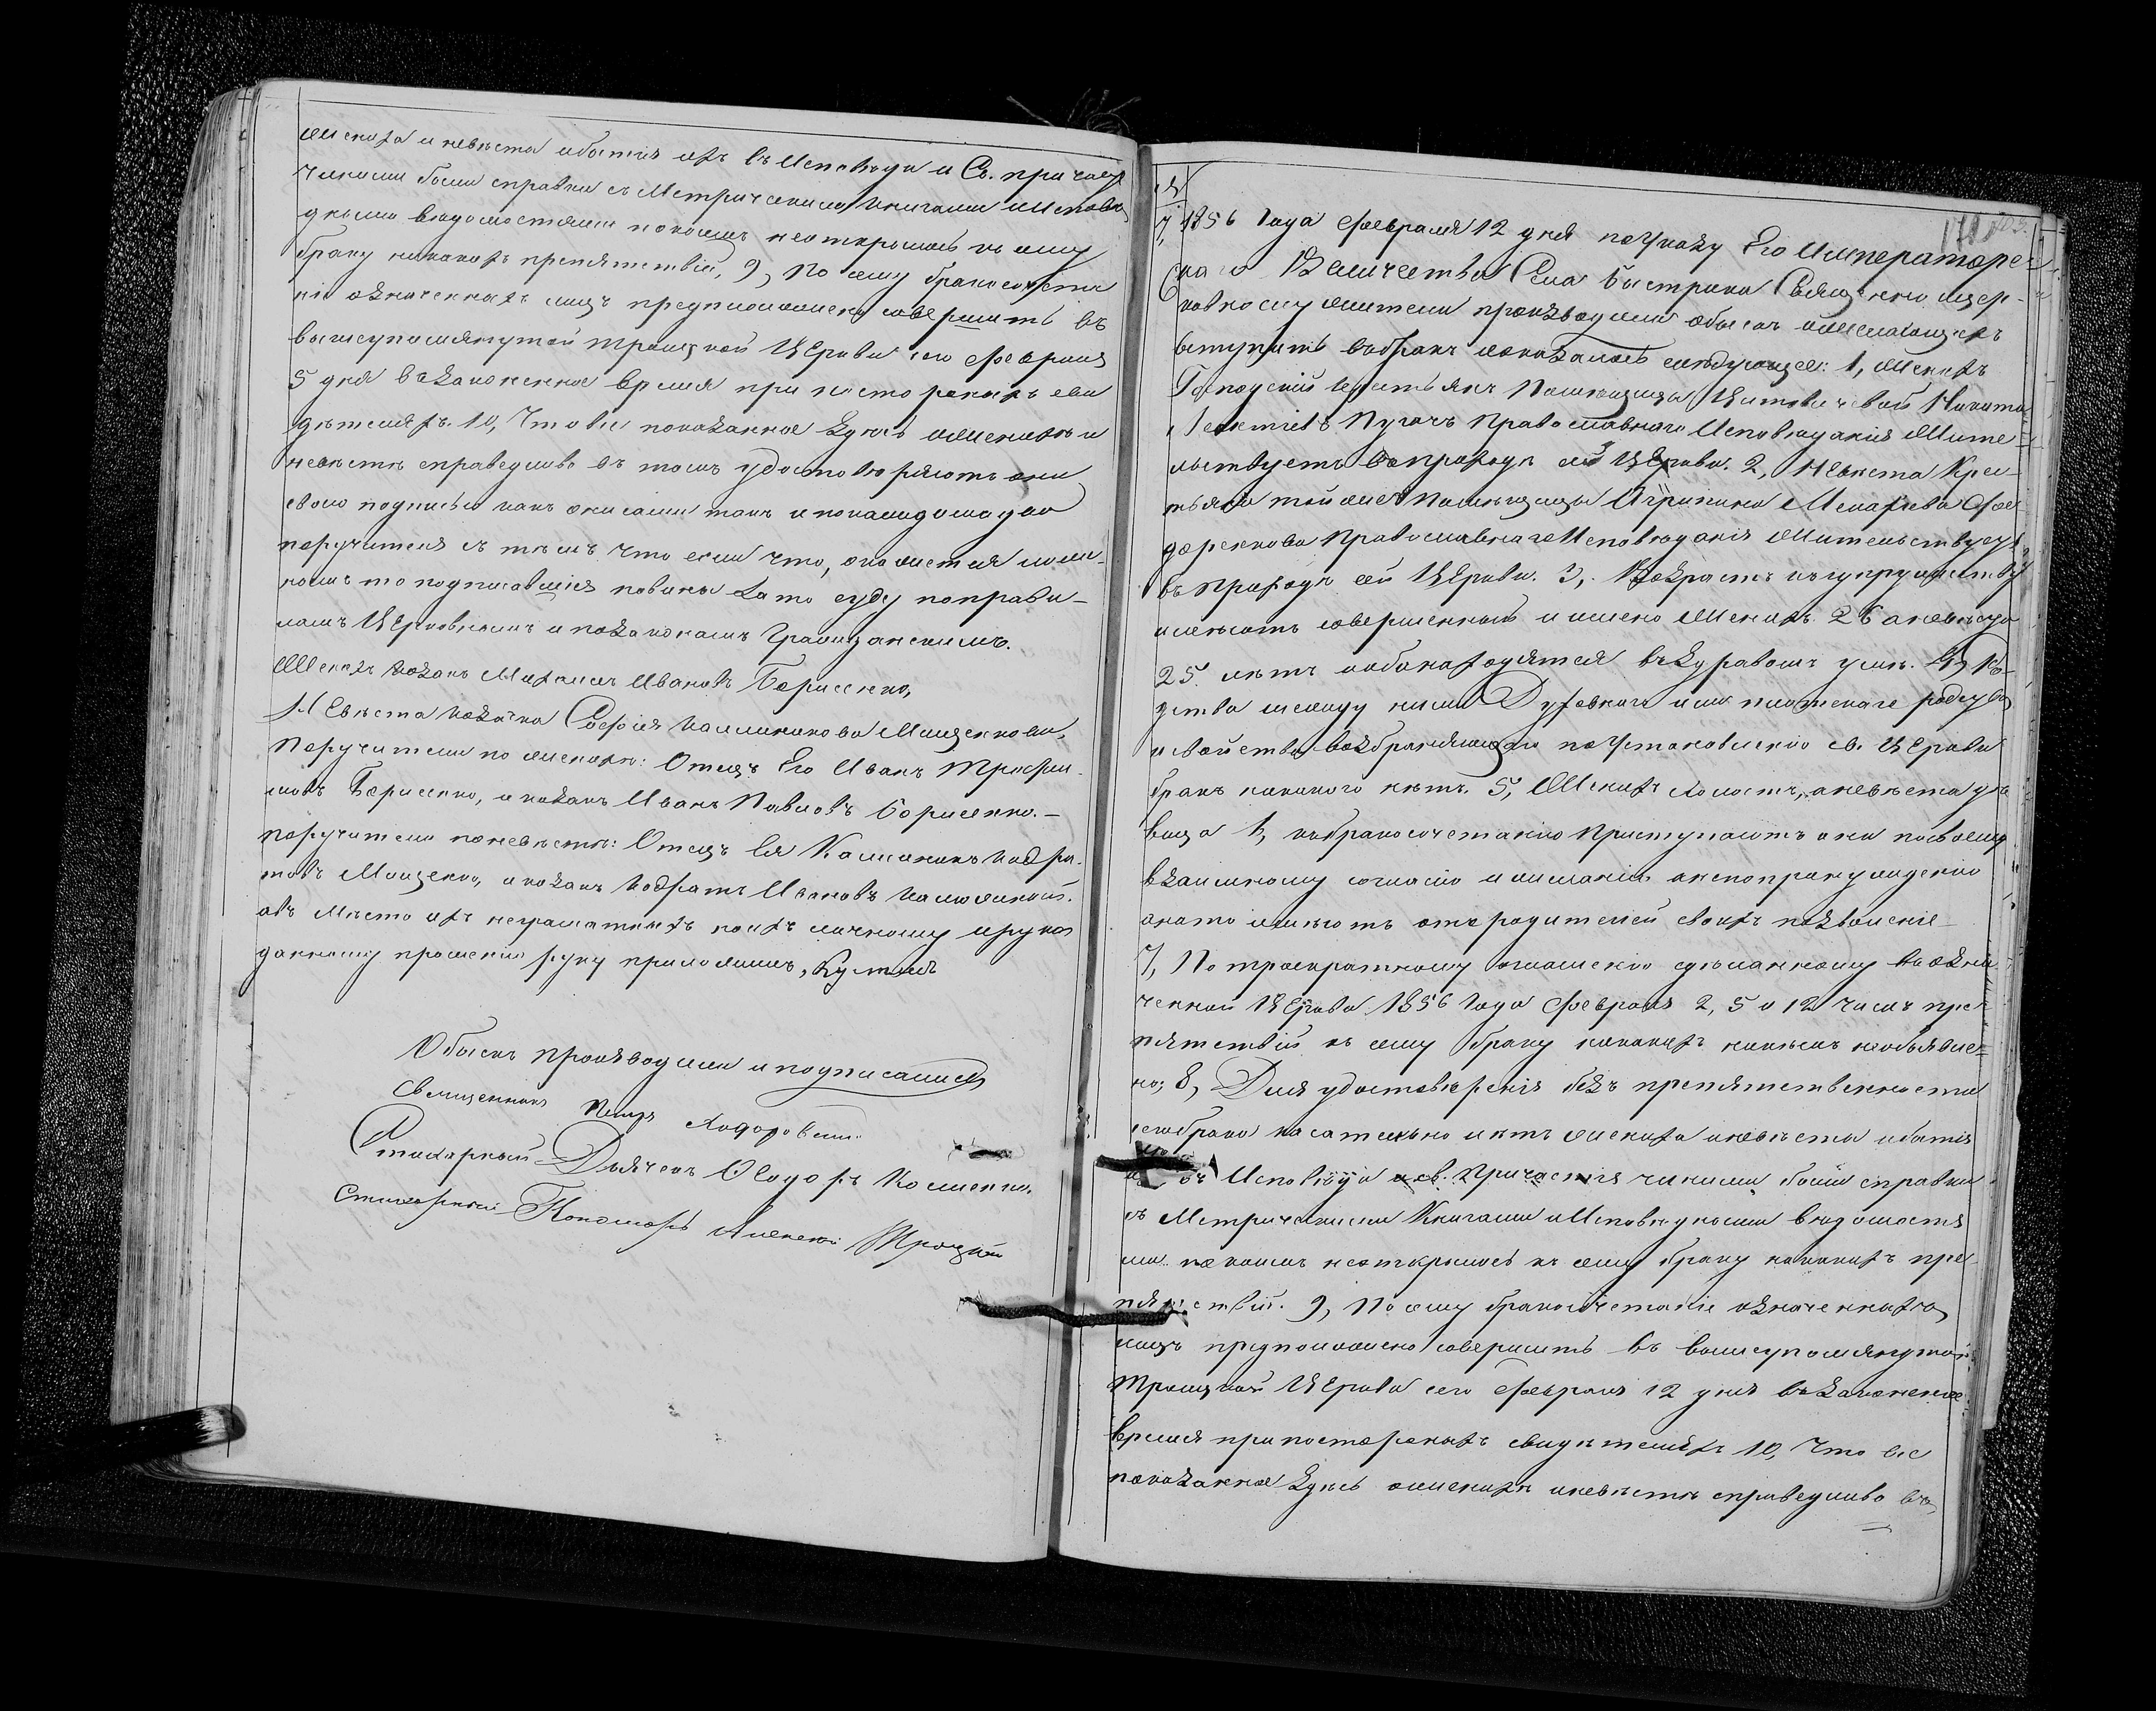 жениха и невеста и бытія ихъ въ Исповеди и Св. причастія
чинили были справки съ Метрическими книгами и Испове
дными ведомостями покоимъ неоткрылось къ сему
браку никакихъ препятствій, 9, По сему бракосочета
ніе означенныхъ лицъ предположено совершить въ
вышеупомянутой Троицкой Церкви сего Февраля
5 дня въ законенное время при постороннихъ сви
детеляхъ. 10, Что все показанное здесь о женихе и
невесте справедливо въ томъ удостоверяютъ они
свою подписью какъ они сами такъ и по каждому два
поручителя съ темъ что если что, окажется лож-
номъ то подписавшіеся повины за то суду по прави-
ламъ Церковнымъ и по законамъ Гражданскимъ.
Женихъ козакъ Михаилъ Ивановъ Борисенко,
Невеста козачка Софія Калиникова Мищенкова,
Поручители по женихе: Отецъ Его Иванъ Трофи-
мовъ Борисенко, и козакъ Иванъ Павловъ Борисенко.-
поручители по невесте: Отецъ Ея Калиникъ Кодра-
товъ Мищенко, и козакъ Кодратъ Ивановъ
а въ место ихъ неграматныхъ по ихъ личному и руко
данному прошенію руку приложилъ,
Обыскъ производили и подписалися
Священникъ Петръ Ходоровскій.
Стихарный Дьячекъ Ѳеодоръ
Стихарный Пономарь Алексей Троцкій
1856 года Февраля 12 дня по Указу Его Императорс-
каго Величества Села Быстрика Священно цер-
ковнослужители производили обыскъ о желающихъ
вступить въ бракъ и оказалось следующее: 1, Женихъ
Крестьянъ Помещицы Никита
Пугачъ Православнаго Исповеданія Жите-
льствуетъ въ приходе сей Церкви. 2, Невеста Крес-
тьянка той же Помещицы Агрипина Макарова Фео
доренкова Православнаго Исповеданія Жительствуетъ
въ Приходе сей Церкви. 3, Возрастъ къ супружеству
имеютъ совершенный и имено Женихъ 26 а невеста
25 летъ и оба находятся въ здравомъ уме. 4, Ро-
дства между ними Духовнаго или плотскаго родства
и свойства возбраняющаго по Установленію св. Церкви
бракъ никакого нетъ. 5, Женихъ Холостъ, а невеста де
вица 6, къ бракосочетанію Приступаютъ они по своему
взаимному согласію и желанію а не по принужденію
а на то имеютъ отъ родителей своихъ позволеніе
7, По троекратному оглашенію сделанному въ озна
ченной Церкви 1856 года Февраля 2, 5 и 12 чиселъ пре-
пятствій къ сему браку никакихъ никемъ необъявле-
но; 8, Для удостоверенія безъ препятственности
сего брака касательно летъ жениха и невеста и бытія
ихъ въ Исповеди и св. Причастія чинили были справки
съ Метрическими Книгами и Исповедными ведомостя
ми по коимъ неоткрылось къ сему браку никакихъ пре-
пятствій. 9, По сему бракосочетаніе означенныхъ
лицъ предположено совершить въ вышеупомянутой
Троицкой Церкви сего Февраля 12 дня въ законенное
время при постороннихъ свидетеляхъ 10, Что все
показанное здесь о женихе и невесте справедливо въ